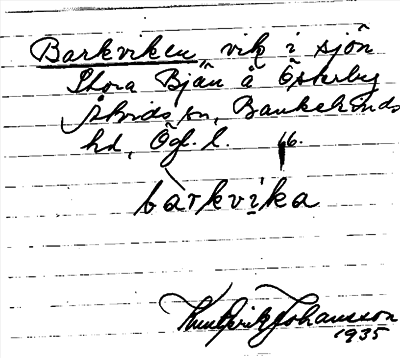 Barkviken, vik i sjön
Stora Bjän å Österby
Åtvids sn, Bankekinds
hd, Ögl. l. 66.
bàrkvika
Knut Erik Johansson
1935